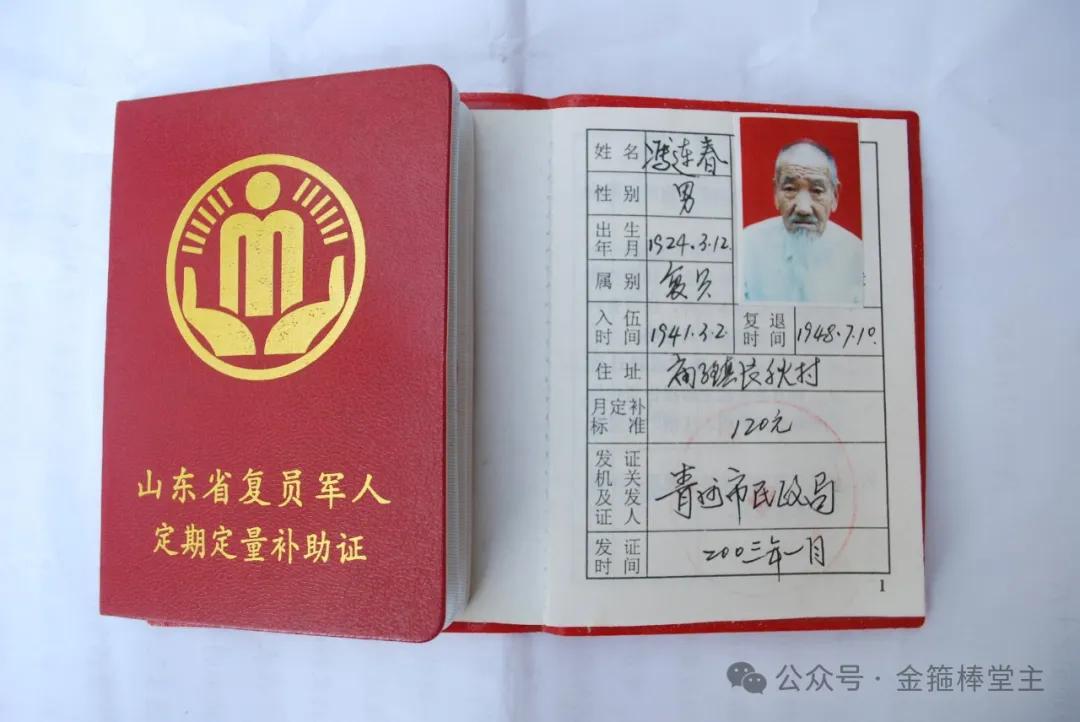 山东省复员军人
定期定量补助证
姓名 冯连春
性别 男
出生年月 1924.3.12.
属别 复员
入伍时间 1941.3.2. 复退时间 1948.7.10.
住址 庙子镇长秋村
月定补标准 120元
发证机关及发证人 青州市民政局
发证时间 二00三年一月
1
公众号·金箍棒堂主